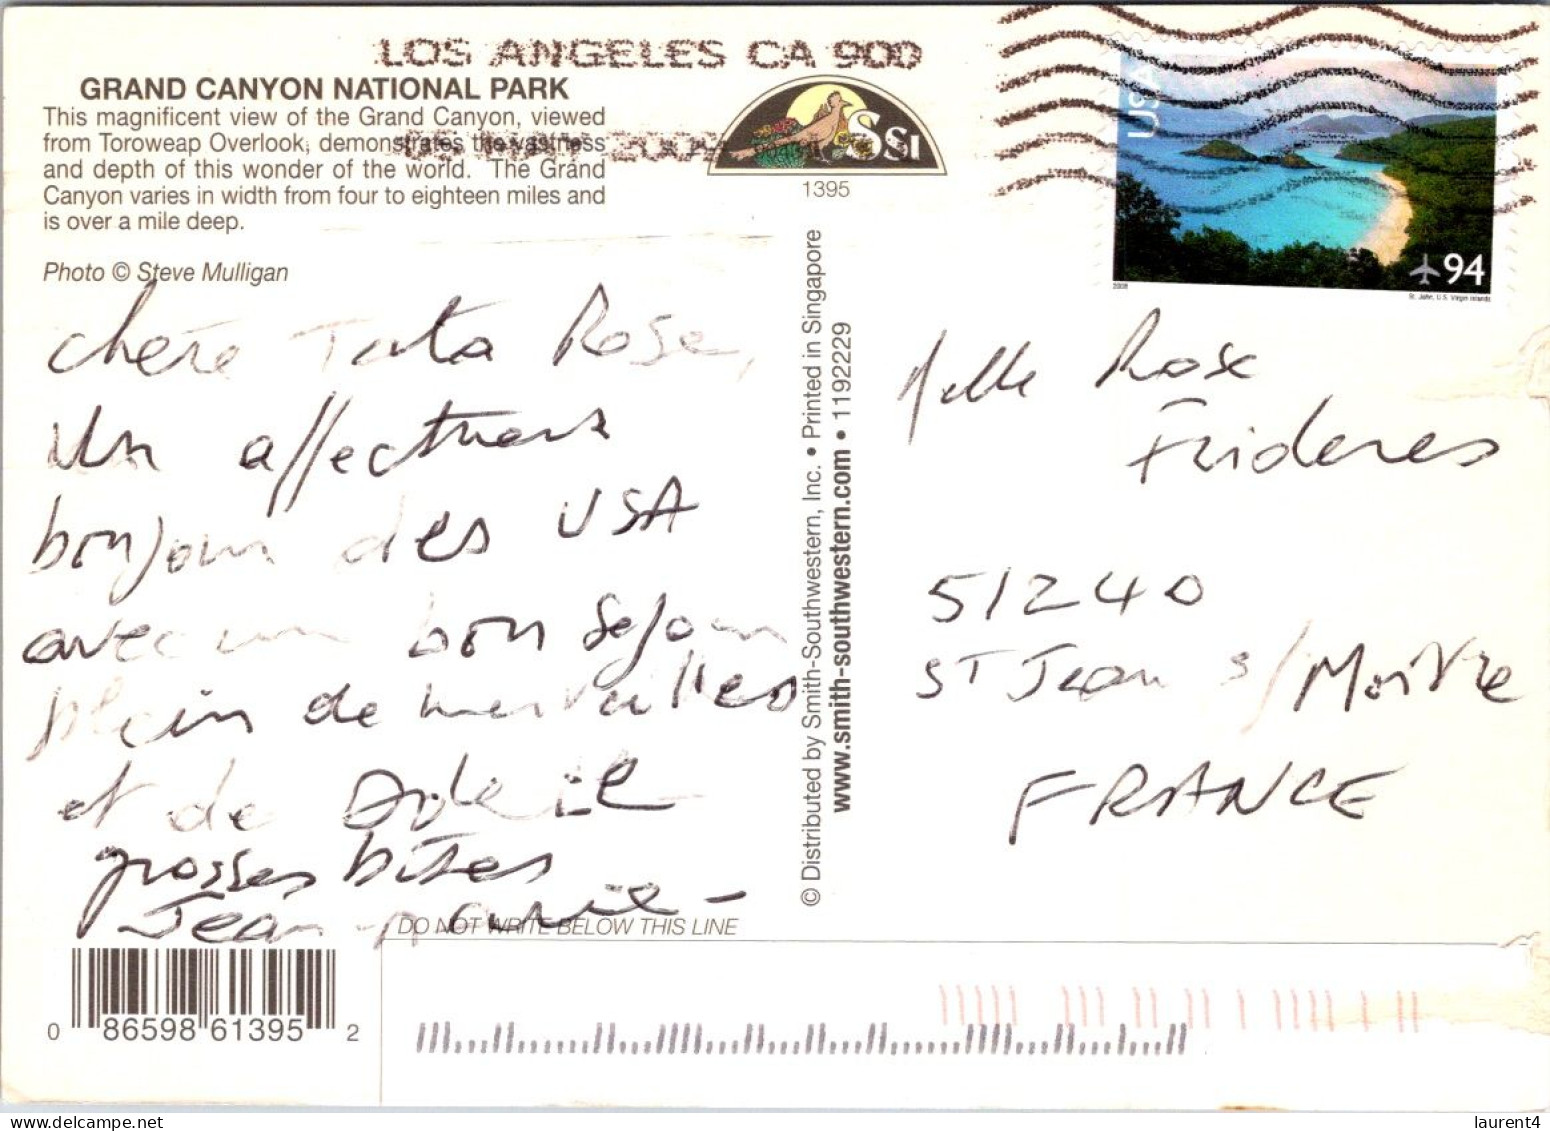 LOS ANGELES CA 900
GRAND CANYON NATIONAL PARK
This magnificent view of the Grand Canyon, viewed
from Toroweap Overlook, demonstrates the vastness
and depth of this wonder of the world. The Grand
Canyon varies in width from four to eighteen miles and
is over a mile deep.
Photo © Steve Mulligan
2009
SSI
1395
USA
94
2008
St. John, U.S. Virgin Islands
chère Tata Rose,
Un affectueux
bonjour des USA
avec un bon séjour
plein de merveilles
et de soleil
grosses bises
Jean-Marie -
© Distributed by Smith-Southwestern, Inc. • Printed in Singapore
www.smith-southwestern.com • 11922229
Melle Rose
Frideres
51240
ST Jean s/ Moivre
FRANCE
DO NOT WRITE BELOW THIS LINE
0 86598 61395 2
laurent4